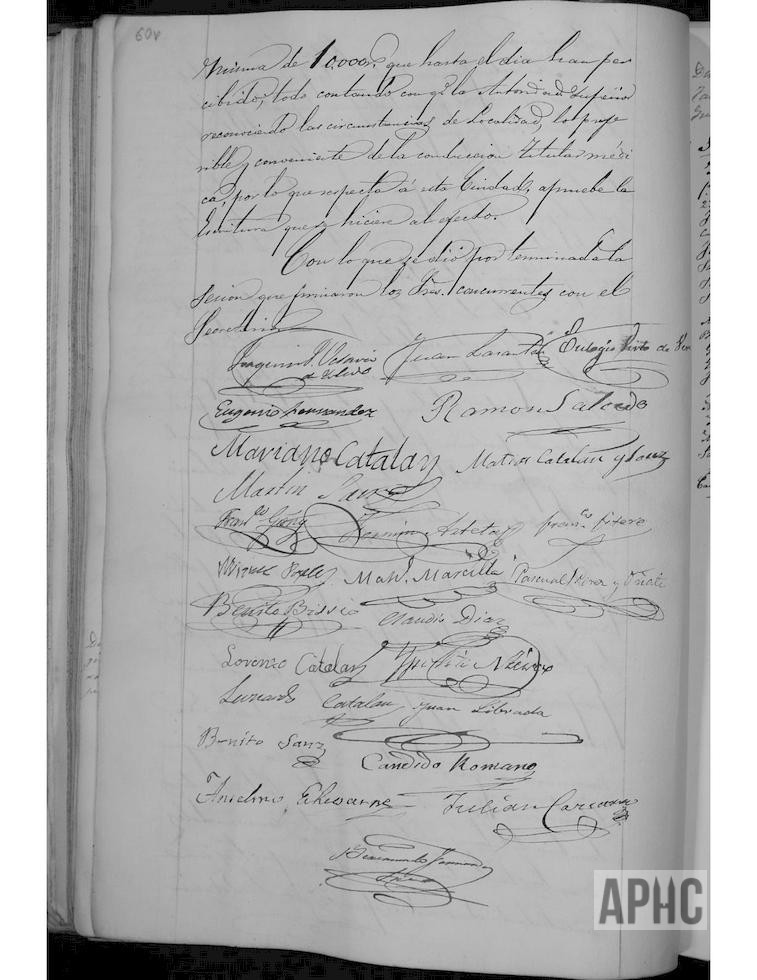 60v
misma de 10.000 r. que hasta el dia han per
cibido; todo contando con qe. la Autoridad Superior
reconociendo las circunstancias de Localidad, lo prefe
rible y conveniente de la conduccion titular médi
ca, por lo que respecta á esta Ciudad, apruebe la
Escritura que se hiciere al efecto.
Con lo que se dió por terminada la
sesion que firmaron los Sres. concurrentes con el
Secretario
Juan Eulogio de
Eugenio Fernandez Ramon Salcedo
Mariano Catalan Matias Catalan y Sanz
Martin Sanz
Fermin Arteta Franco. Pitero
Manl. Marcilla Pascual y Oñate
Benito Claudio Diaz
Lorenzo Catalan
Leonardo Catalan Juan Librada
Benito Sanz
Candido Romano
Anselmo Echevarne Julian
APHC